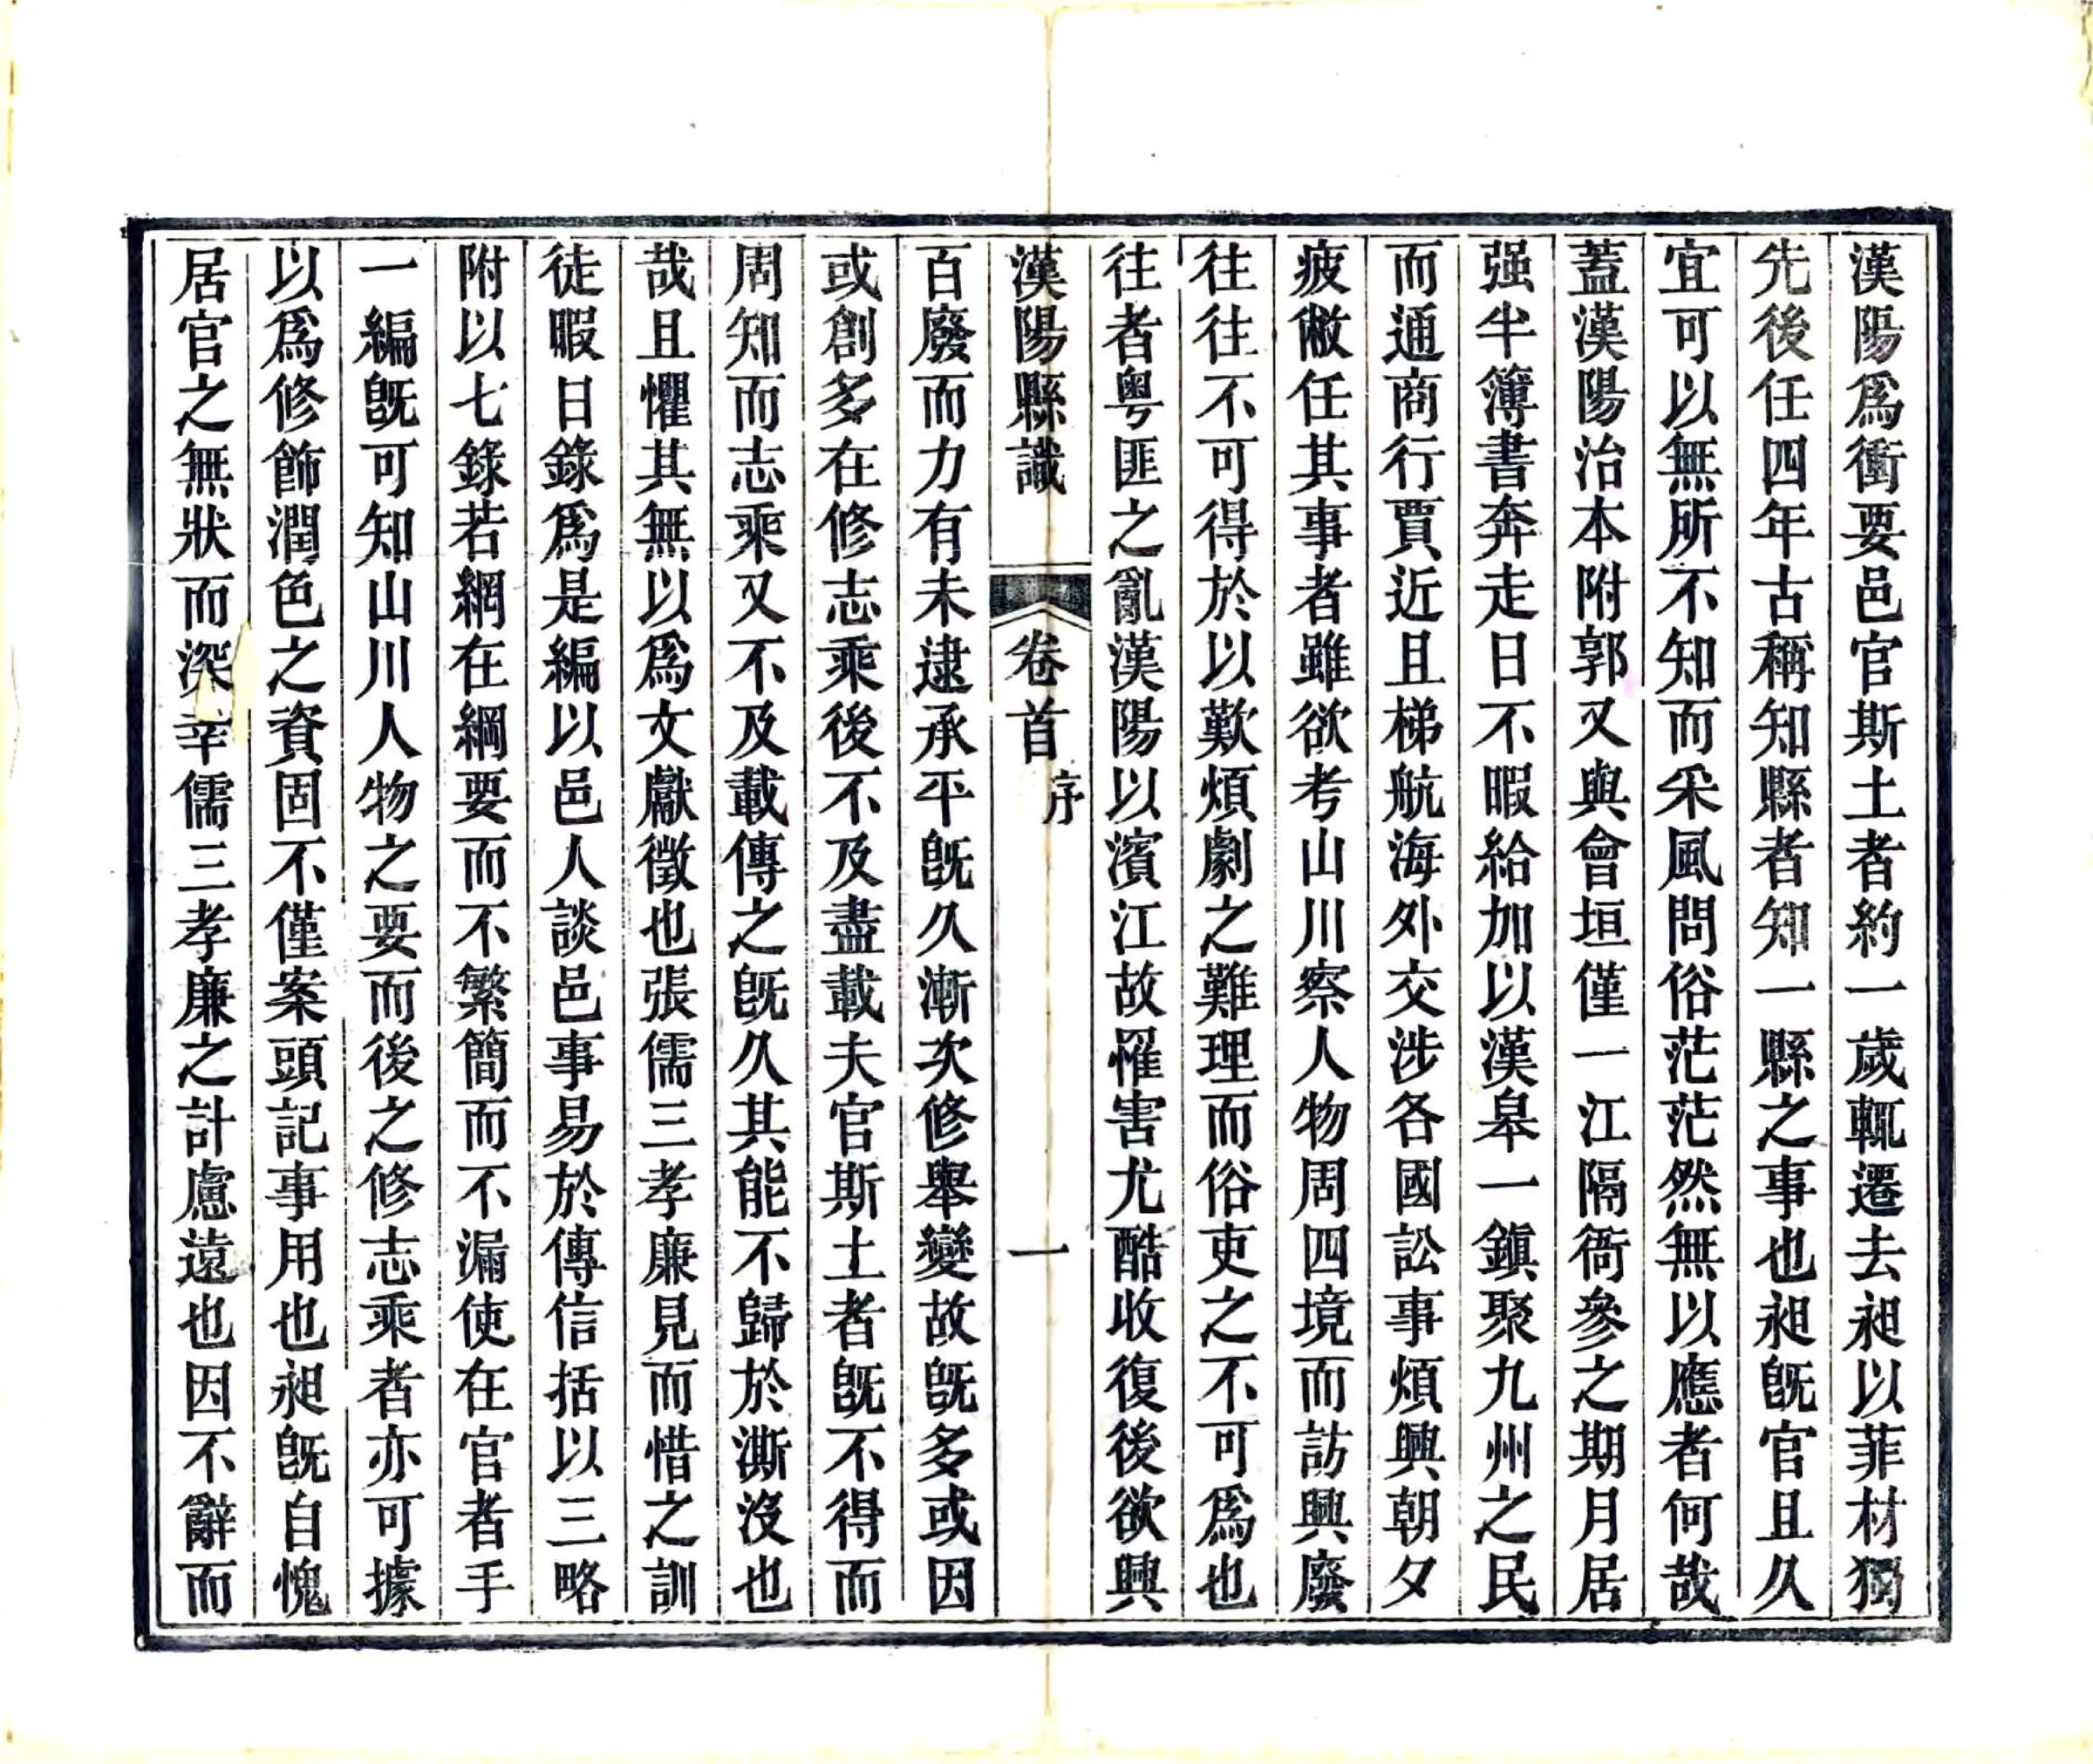 漢陽爲衝要邑官斯土者約一歲輒遷去昶以菲材獨
先後任四年古稱知縣者知一縣之事也昶旣官且久
宜可以無所不知而采風問俗茫茫然無以應者何哉
蓋漢陽治本附郭又與會垣僅一江隔衙參之期月居
强半簿書奔走日不暇給加以漢臯一鎭聚九州之民
而通商行賈近且梯航海外交涉各國訟事煩興朝夕
疲敝任其事者雖欲考山川察人物周四境而訪興廢
往往不可得於以歎煩劇之難理而俗吏之不可爲也
往者粤匪之亂漢陽以濱江故罹害尤酷收復後欲興
漢陽縣識 卷首 序 一
百廢而力有未逮承平旣久漸次修舉變故旣多或因
或創多在修志乘後不及盡載夫官斯土者旣不得而
周知而志乘又不及載傳之旣久其能不歸於澌沒也
哉且懼其無以爲文獻徵也張儒三孝廉見而惜之訓
徒暇日錄爲是編以邑人談邑事易於傳信括以三略
附以七錄若網在綱要而不繁簡而不漏使在官者手
一編旣可知山川人物之要而後之修志乘者亦可據
以爲修飾潤色之資固不僅案頭記事用也昶旣自愧
居官之無狀而深幸儒三孝廉之計慮遠也因不辭而